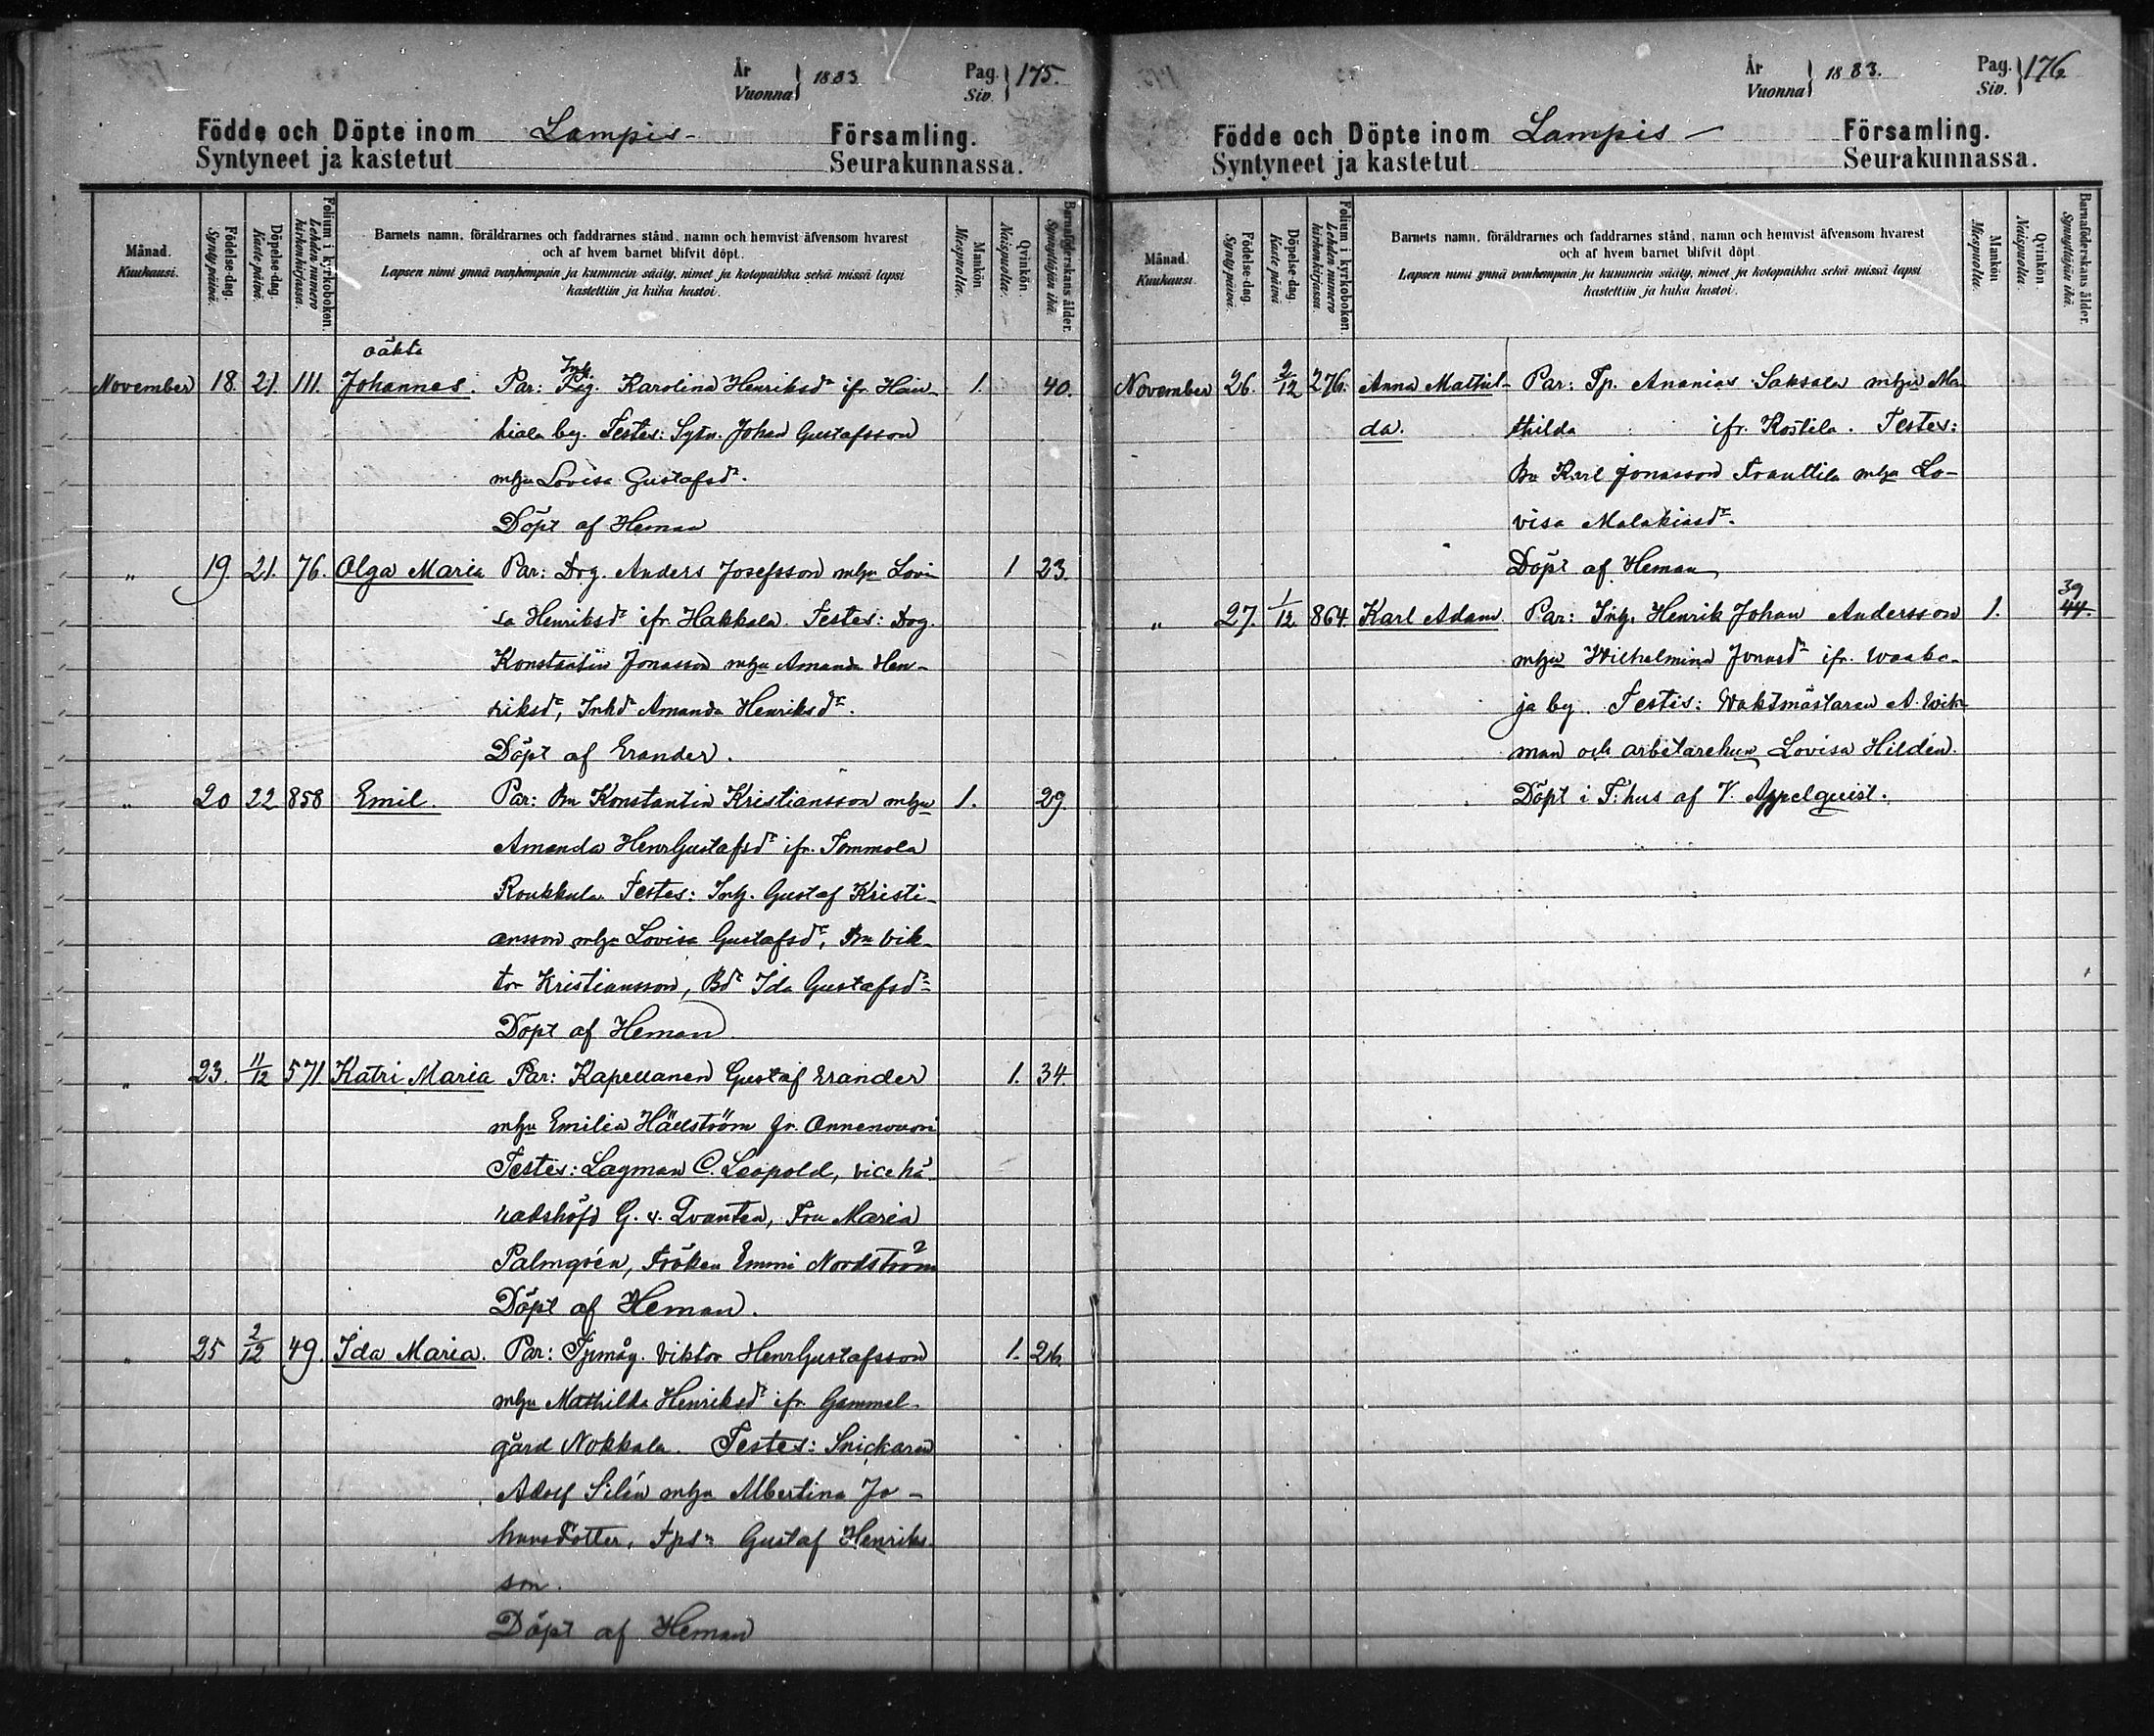 År
Vuonna } 1883 Pag.
Siv. } 175.
Födde och Döpte inom Lampis Församling.
Syntyneet ja kastetut Seurakunnassa.
Månad.
Kuukausi.
Födelse-dag.
Syntypäivä.
Döpelse-dag.
Kastepäivä.
Folium i kyrkoboken.
Lehden numero
kirkonkirjassa.
Barnets namn, föräldrarnes och faddrarnes stånd, namn och hemvist äfvensom hvarest
och af hvem barnet blifvit döpt.
Lapsen nimi ynnä vanhempain ja kummein sääty, nimet ja kotopaikka sekä missä lapsi
kastettiin ja kuka kastoi.
Mankön.
Miespuolia.
Qvinkön.
Naispuolia.
Barnaföderskans ålder.
Synnyttäjän ikä.
oäkta
November 18. 21. 111. Johannes. Par: Karolina Henriksdr ifr. Hain- 1. 40.
kiala by. Testes: Sytn. Johan Gustafsson
mhu Lovisa Gustafsdr.
Döpt af Heman
" 19. 21. 76. Olga Maria Par: Drg. Anders Josefsson mhu Lovi 1 23.
sa Henriksdr ifr. Hakkala. Testes: Drg.
Konstantin Jonasson mhu Amanda Hen-
riksdr, Inhdr Amanda Henriksdr.
Döpt af Erander.
" 20 22 858 Emil. Par: Bn Konstantin Kristiansson mhu 1. 29.
Amanda HenrGustafsdr ifr. Tommola
Roukkula. Testes: Inh. Gustaf Kristi-
ansson mhu Lovisa Gustafsdr, Bn Vik-
tor Kristiansson, Bdr Ida Gustafsdr
Döpt af Heman
" 23. 11/12 571 Katri Maria Par: Kapellanen Gustaf Erander 1. 34.
mhu Emilia Hällström fr. Onnenvuori
Testes: Lagman C. Leopold, vice hä-
radshöfd G. v. Qvanten, Fru Maria
Palmqvén, Fröken Emmi Nordström
Döpt af Heman.
" 25 2/12 49. Ida Maria. Par: Tpmåg. Viktor HenrGustafsson 1. 26.
mhu Mathilda Henriksdr ifr. Gammel-
gård Nokkala. Testes: Snickaren
Adolf Silén mhu Albertina Jo-
hansdotter, Gustaf Henriks-
son.
Döpt af Heman
År
Vuonna } 1883. Pag.
Siv. } 176
Födde och Döpte inom Lampis Församling.
Syntyneet ja kastetut Seurakunnassa.
Månad.
Kuukausi.
Födelse-dag.
Syntypäivä.
Döpelse-dag.
Kastepäivä
Folium i kyrkoboken.
Lehden numero
kirkonkirjassa.
Barnets namn, föräldrarnes och faddrarnes stånd, namn och hemvist äfvensom hvarest
och af hvem barnet blifvit döpt.
Lapsen nimi ynnä vanhempain ja kummein sääty, nimet ja kotopaikka sekä missä lapsi
kastettiin ja kuka kastoi.
Mankön
Miespuolia.
Qvinkön.
Naispuolia.
Barnaföderskans ålder.
Synnyttäjän ikä.
November 26. 2/12 276. Anna Mathil- Par: Tp. Ananias Saksala mhu Ma
da. thilda ifr. Kostila. Testes:
Bn Karl Jonasson Frauttila mhu Lo-
visa Malakiasdr.
Döpt af Heman
39
" 27. 1/12 864. Karl Adam. Par: Inh. Henrik Johan Andersson 1. 44.
mhu Wilhelmina Jonasdr ifr. Waaba-
ja by. Testis: Waktmästaren A. Wik-
man och arbetarehun Lovisa Hildén.
Döpt i F:hus af V. Appelquist.